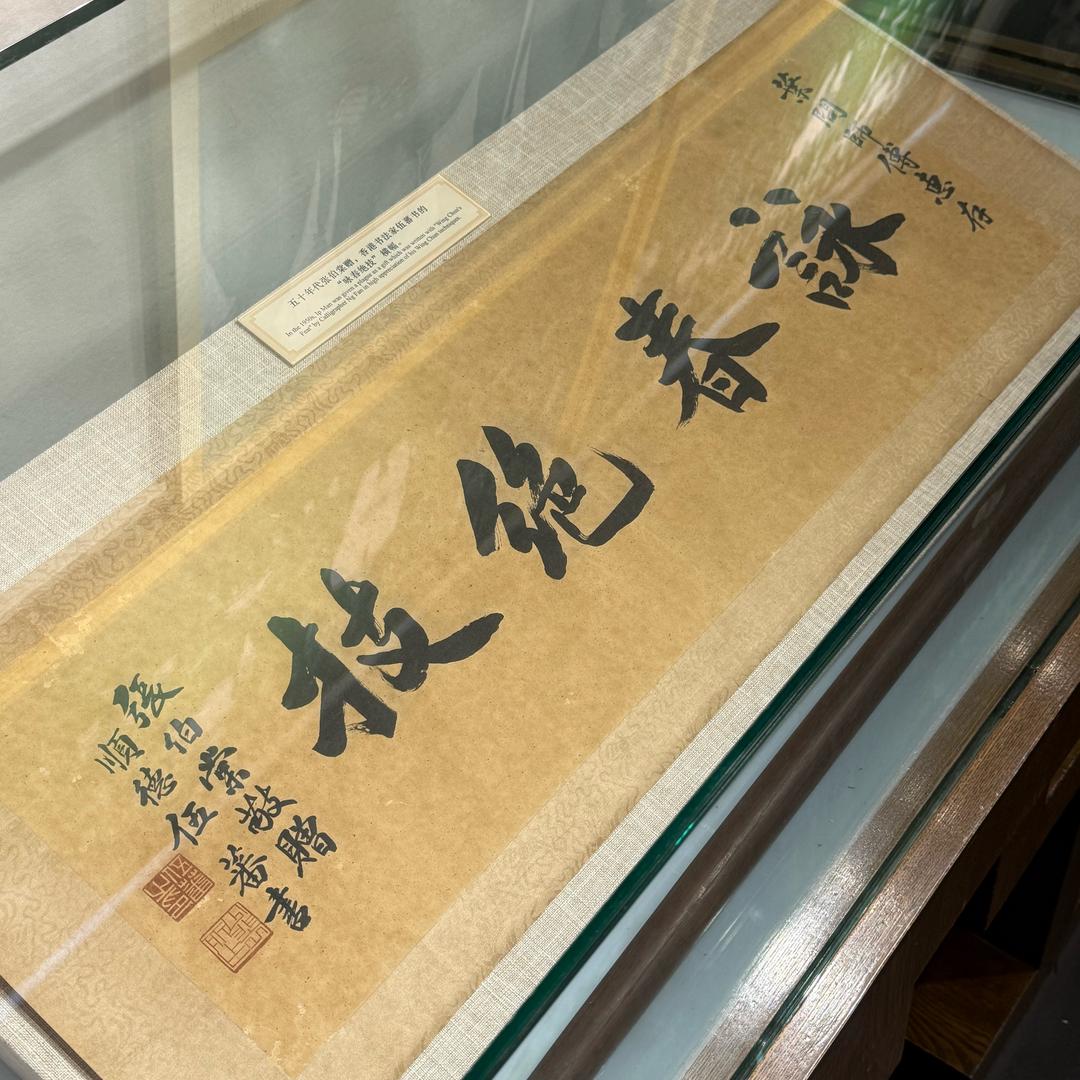 葉問師傅惠存
詠春絕技
張伯棠敬贈
順德伍蕃書
五十年代张伯棠赠，香港书法家伍蕃书的
“咏春绝技”横幅。
In the 1950s, Ip Man was given a plague as a gift which was written with "Wing Chun's
Feat" by Calligrapher Ng Fan in high appreciation of his Wing Chun techniques.